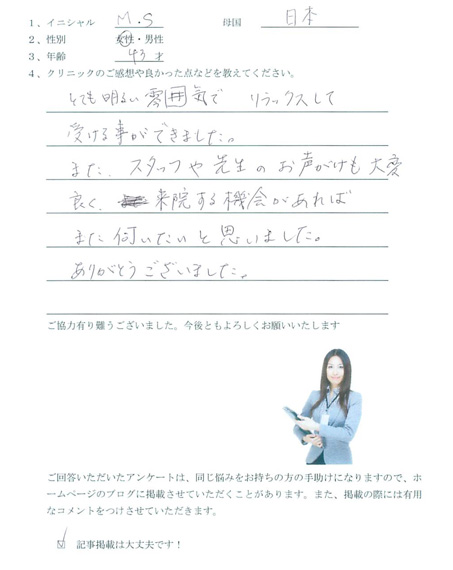 1、イニシャル M.S 母国 日本
2、性別 女性・男性
3、年齢 43才
4、クリニックのご感想や良かった点などを教えてください。
とても明るい雰囲気で リラックスして
受ける事ができました。
また、スタッフや先生のお声がけも大変
良く、来院する機会があれば
また伺いたいと思いました。
ありがとうございました。
ご協力有り難うございました。今後ともよろしくお願いいたします
ご回答いただいたアンケートは、同じ悩みをお持ちの方の手助けになりますので、ホ
ームページのブログに掲載させていただくことがあります。また、掲載の際には有用
なコメントをつけさせていただきます。
☑ 記事掲載は大丈夫です！